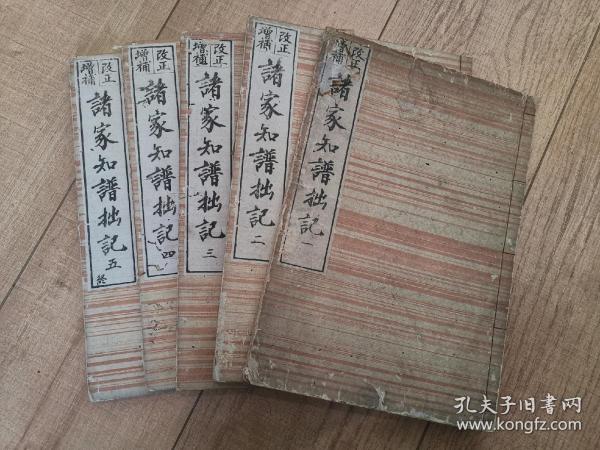 改正
增補
諸家知譜拙記 一
改正
增補
諸家知譜拙記 二
改正
增補
諸家知譜拙記 三
改正
增補
諸家知譜拙記 四
改正
增補
諸家知譜拙記 五 終
孔夫子旧书网
www.kongfz.com